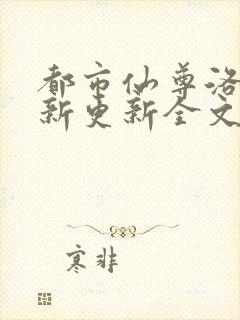 都市仙尊洛
新更新全文
寒非